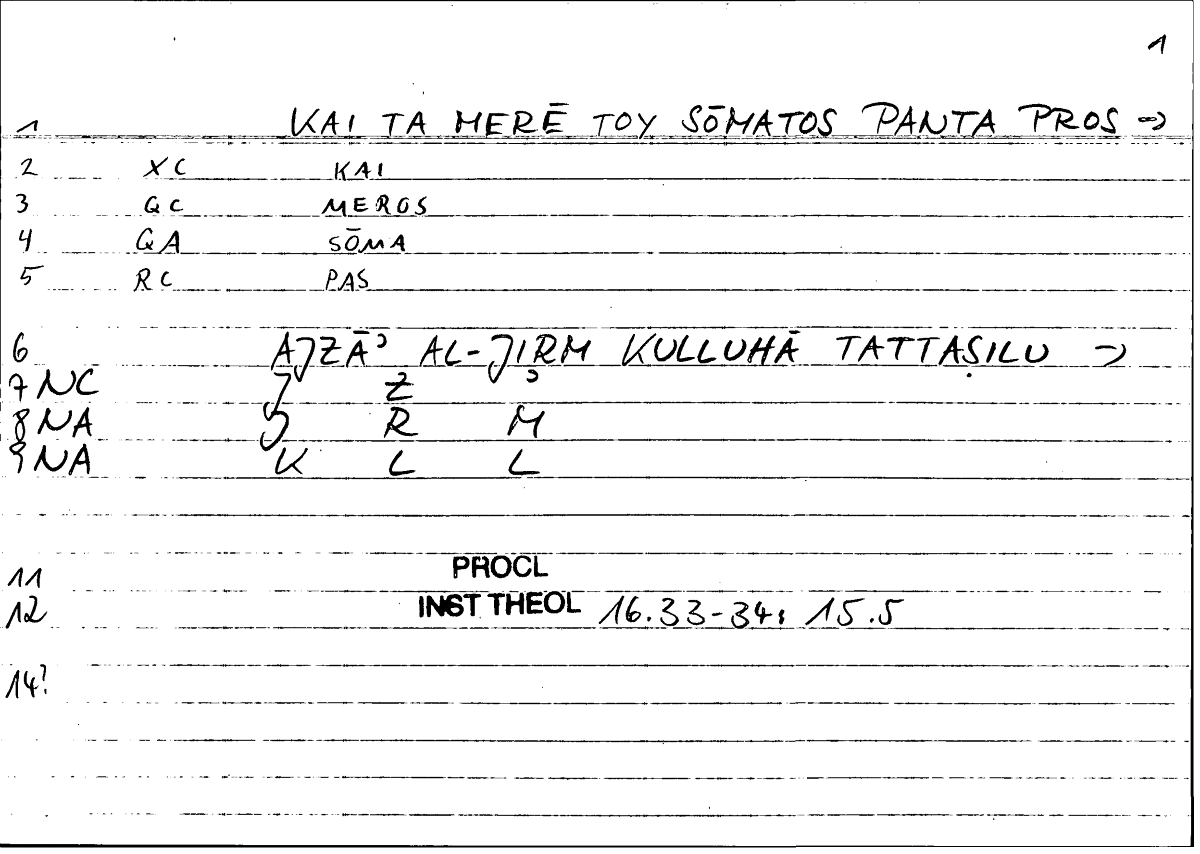 1
1 KAI TA MERĒ TOY SŌMATOS PANTA PROS →
2 XC KAI
3 QC MEROS
4 QA SŌMA
5 RC PAS
6 AJZĀʾ AL-JIRM KULLUHĀ TATTAṢILU →
7 NC J Z ʾ
8 NA J R M
9 NA K L L
11 PROCL
12 INST THEOL 16.33-34: 15.5
14?